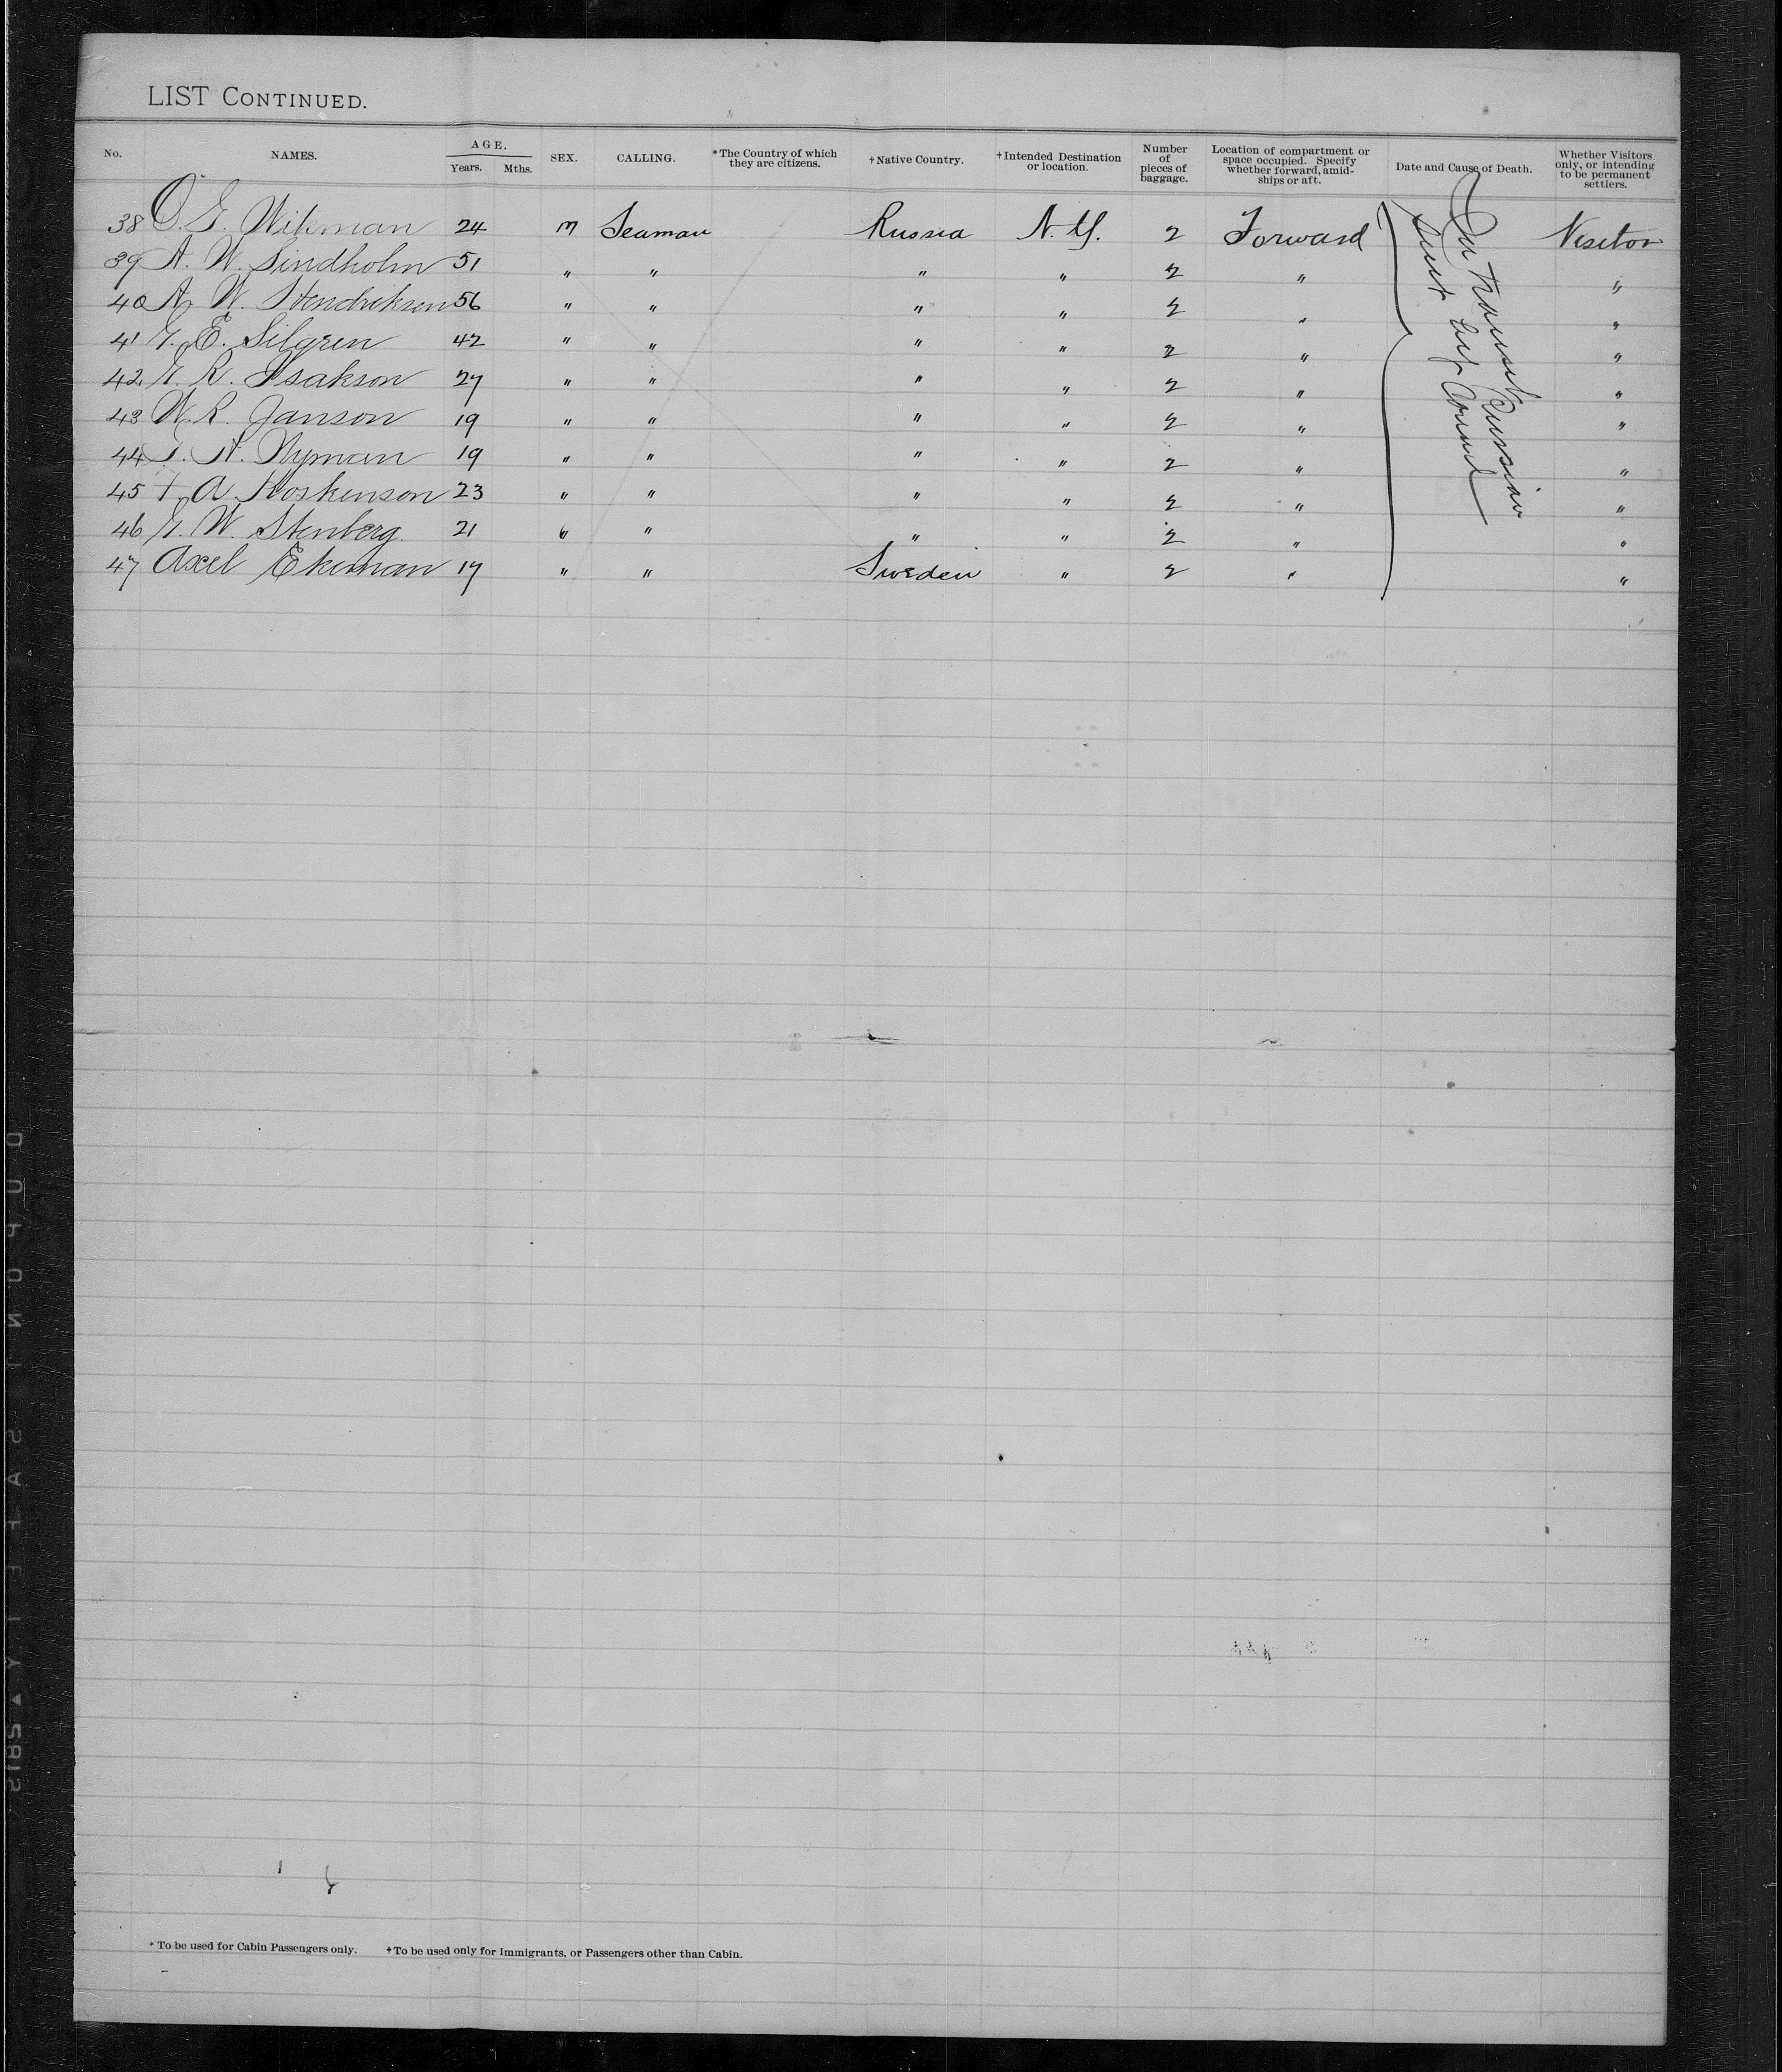 LIST CONTINUED.
No. NAMES. AGE. Years. Mths. SEX. CALLING. *The Country of which they are citizens. †Native Country. †Intended Destination or location. Number of pieces of baggage. Location of compartment or space occupied. Specify whether forward, amidships or aft. Date and Cause of Death. Whether Visitors only, or intending to be permanent settlers.
38 O. G. Wikman 24 M Seaman Russia N. Y. 2 Forward Visitor
39 A. W. Lindholm 51 " " " " 2 " "
40 A. W. Hendrikson 56 " " " " 2 " "
41 E. Silgren 42 " " " " 2 " "
42 R. Isakson 27 " " " " 2 " "
43 W. R. Janson 19 " " " " 2 " "
44 Nyman 19 " " " " 2 " "
45 A. Hoskenson 23 " " " " 2 " "
46 W. Stenberg. 21 " " " " 2 " "
47 Axel Ekeman 17 " " Sweden " 2 " "
In transit
Sent by Russian Consul
* To be used for Cabin Passengers only. †To be used only for Immigrants, or Passengers other than Cabin.
DUPONT SAFETY ▲ 2812